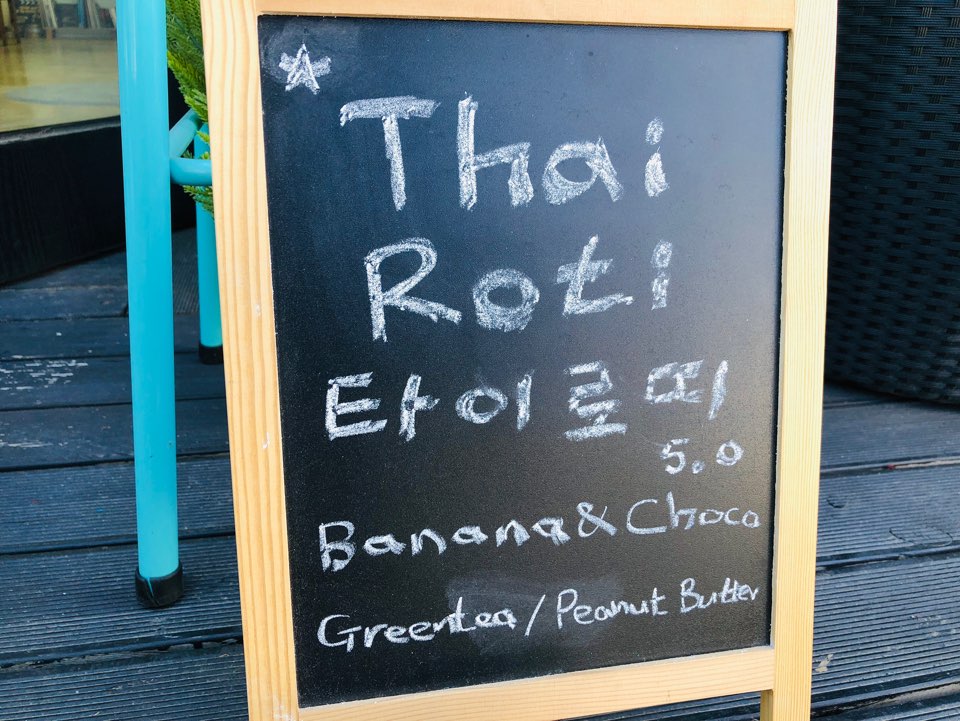 Thai
Roti
타이로띠
5.0
Banana & Choco
Greentea / Peanut Butter